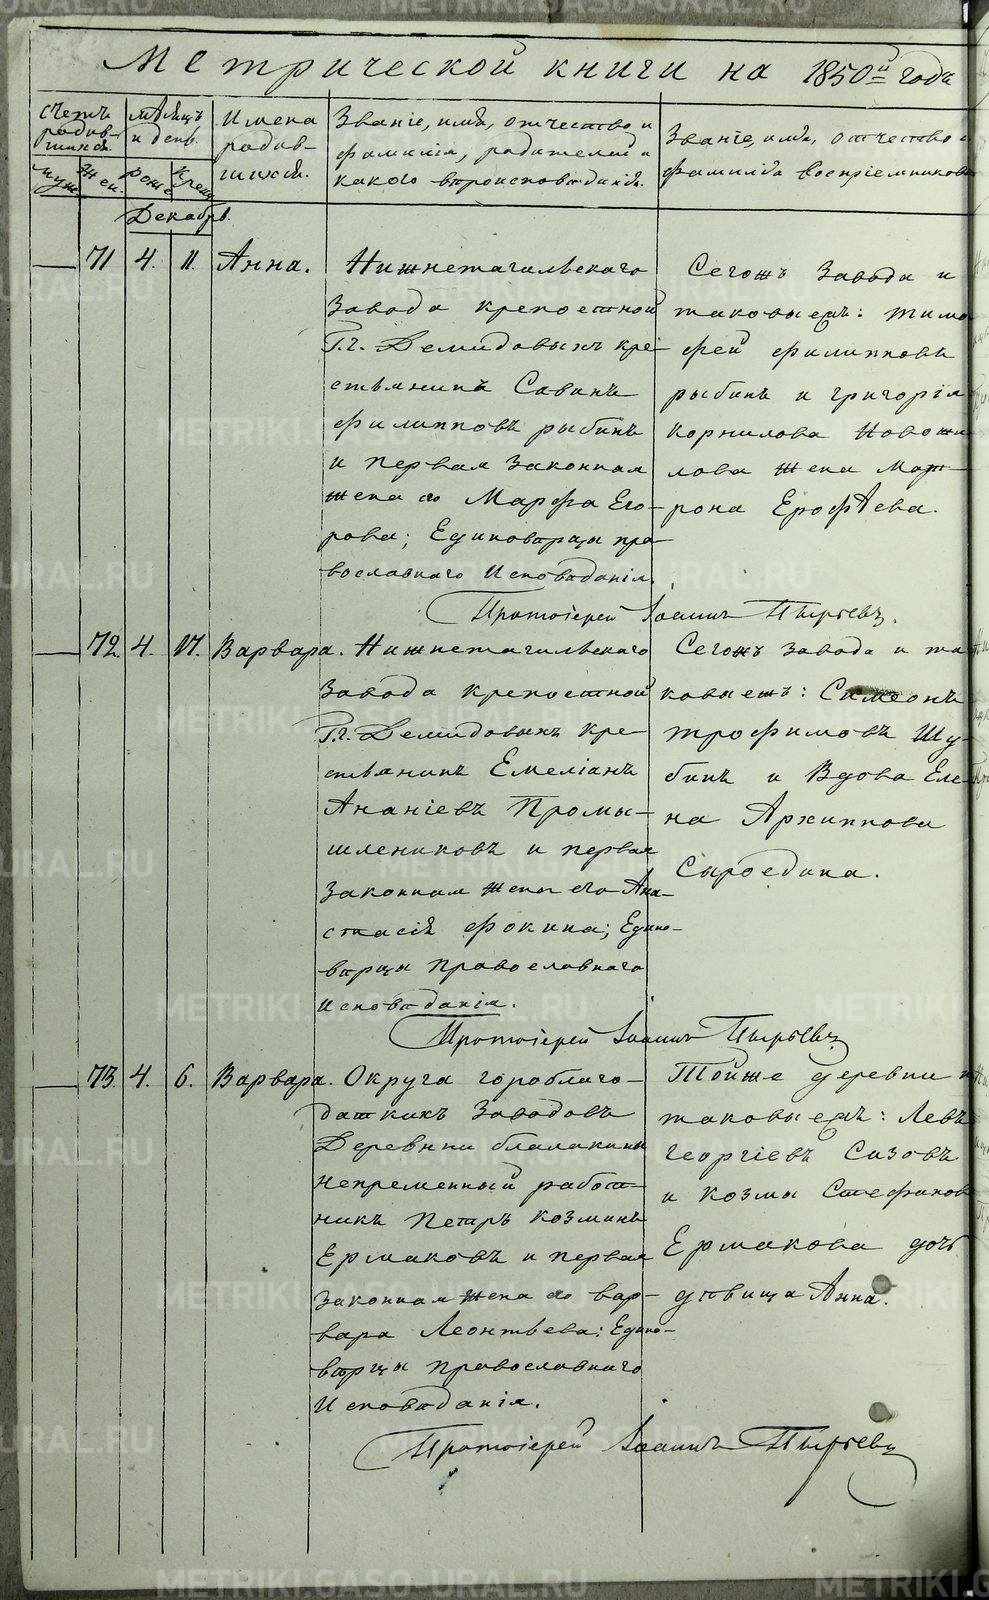 Метрической книги на 1850й года
Счетъ родив-шихся.
Муж. Жен.
Мѣсяцъ и день.
Рожд. Крещ.
Имена родив-шихся.
Званіе, имя, отчество и
фамилія, родителей и
какого вѣроисповѣданія.
Званіе, имя, отчество и
фамилія воспріемниковъ
Декабрь.
71 4. 11. Анна.
Нижнетагильскаго
Завода крепостной
Г.г. Демидовыхъ кре-
стьянинъ Савинъ
Филипповъ Рыбинъ
и первая законная
жена его Марфа Его-
рова; Единовѣрцы пра-
вославнаго Исповѣданія.
Сегожъ Завода и
таковыежъ: Тимо-
фей Филипповъ
Рыбинъ и Григорія
Корнилова Новожи-
лова жена Мат-
рона Ерофѣева.
Протоіерей Іоаннъ Пырьевъ.
72. 4. 17. Варвара.
Нижнетагильскаго
Завода крепостной
Г.г. Демидовыхъ кре-
стьянинъ Емеліанъ
Ананіевъ Промы-
шлениковъ и первая
законная жена его Ана-
стасія Фокина; Едино-
вѣрцы православнаго
Исповѣданія.
Сегожъ завода и та-
ковыежъ: Симеонъ
Трофимовъ Шу-
бинъ и Вдова Еле-
на Архиппова
Сыроедина.
Протоіерей Іоаннъ Пырьевъ
73. 4. 6. Варвара.
Округа гороблаго-
датскихъ Заводовъ
Деревни Балакины
непременный работ-
никъ Петръ Козминъ
Ермаковъ и первая
законная жена его Вар-
вара Леонтьева; Едино-
вѣрцы православнаго
Исповѣданія.
Тойже деревни и
таковыежъ: Левъ
Георгіевъ Сизовъ
и Козмы Стефанова
Ермакова дочь
дѣвица Анна.
Протоіерей Іоаннъ Пырьевъ
METRIKI.GASO-URAL.RU